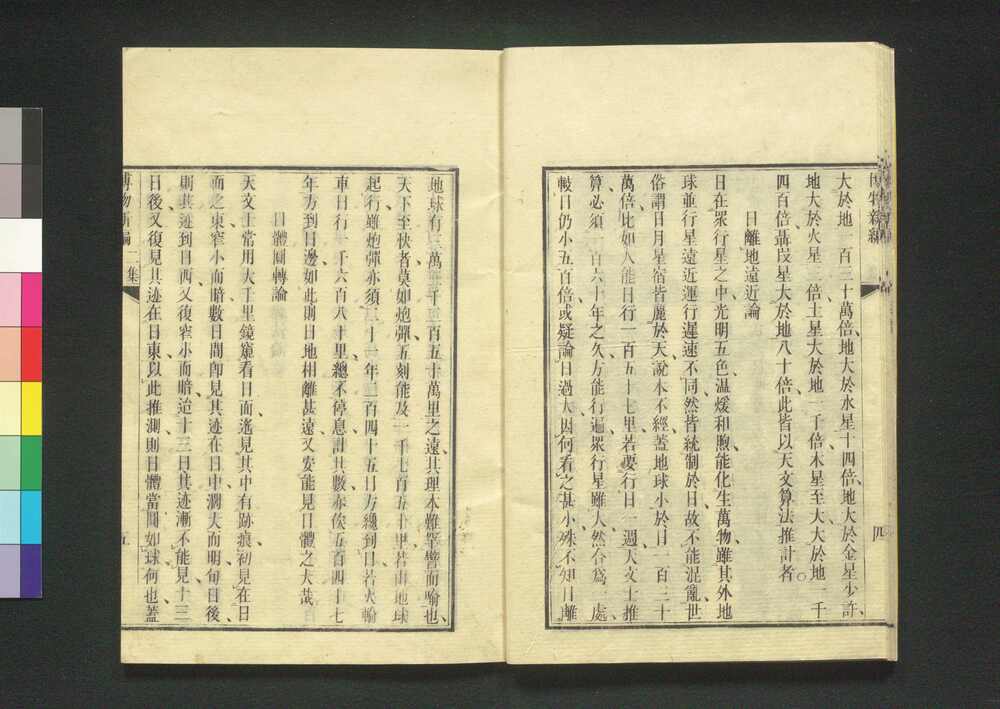 博物新編
四
大於地一百三十萬倍、地大於水星十四倍、地大於金星少許、
地大於火星三倍、土星大於地一千倍、木星至大、大於地一千
四百倍、聶段星大於地八十倍、此皆以天文算法推計者、
日離地遠近論
日在眾行星之中、光明五色、温煖和煦、能化生萬物、雖其外地
球並行星、遠近運行、遲速不同、然皆統制於日、故不能混亂、世
俗謂日月星宿、皆麗於天、說本不經、蓋地球小於日一百三十
萬倍、比如人能日行一百五十七里、若要行日一週、天文士推
算、必須一百六十年之久、方能行遍、眾行星雖大、然合為一處、
較日仍小五百倍、或疑論日過大、因何看之甚小、殊不知日離
地球有三萬 千 百五十萬里之遠、其理本難罕譬而喻也、
天下至快者、莫如炮彈、五刻能及一千七百五十里、若由地球
起行、雖炮彈亦須二十一年二百四十五日、方纔到日、若火輪
車日行一千六百八十里、總不停息、計其數、亦俟五百四十七
年、方到日邊、如此則日地相離甚遠、又安能見日體之大哉、
日體圓轉論
天文士常用大千里鏡、窺看日面、遙見其中有跡痕、初見在日
面之東、窄小而暗、數日間即見其迹在日中、濶大而明、旬日後、
則其迹到日西、又復窄小而暗、迨十三日、其迹漸不能見、十三
日後、又復見其迹在日東、以此推測、則日體當圓如球、何也、蓋
博物新編二集
五